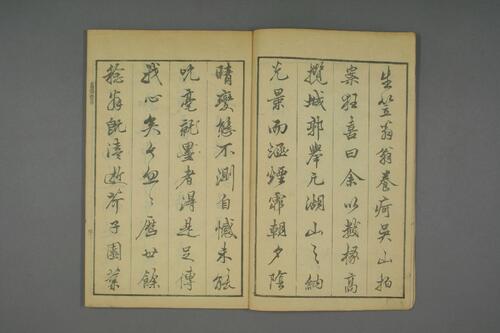 生笠翁翁養疴吳山拍
案狂喜曰余以數椽高
攬城郭舉凡湖山之納
光景而涵煙霏朝夕陰
晴變態不測自憾未能
吮毫就墨者得是足傳
我心矣今忽〻歷廿餘
稔翁既溘逝芥子園業